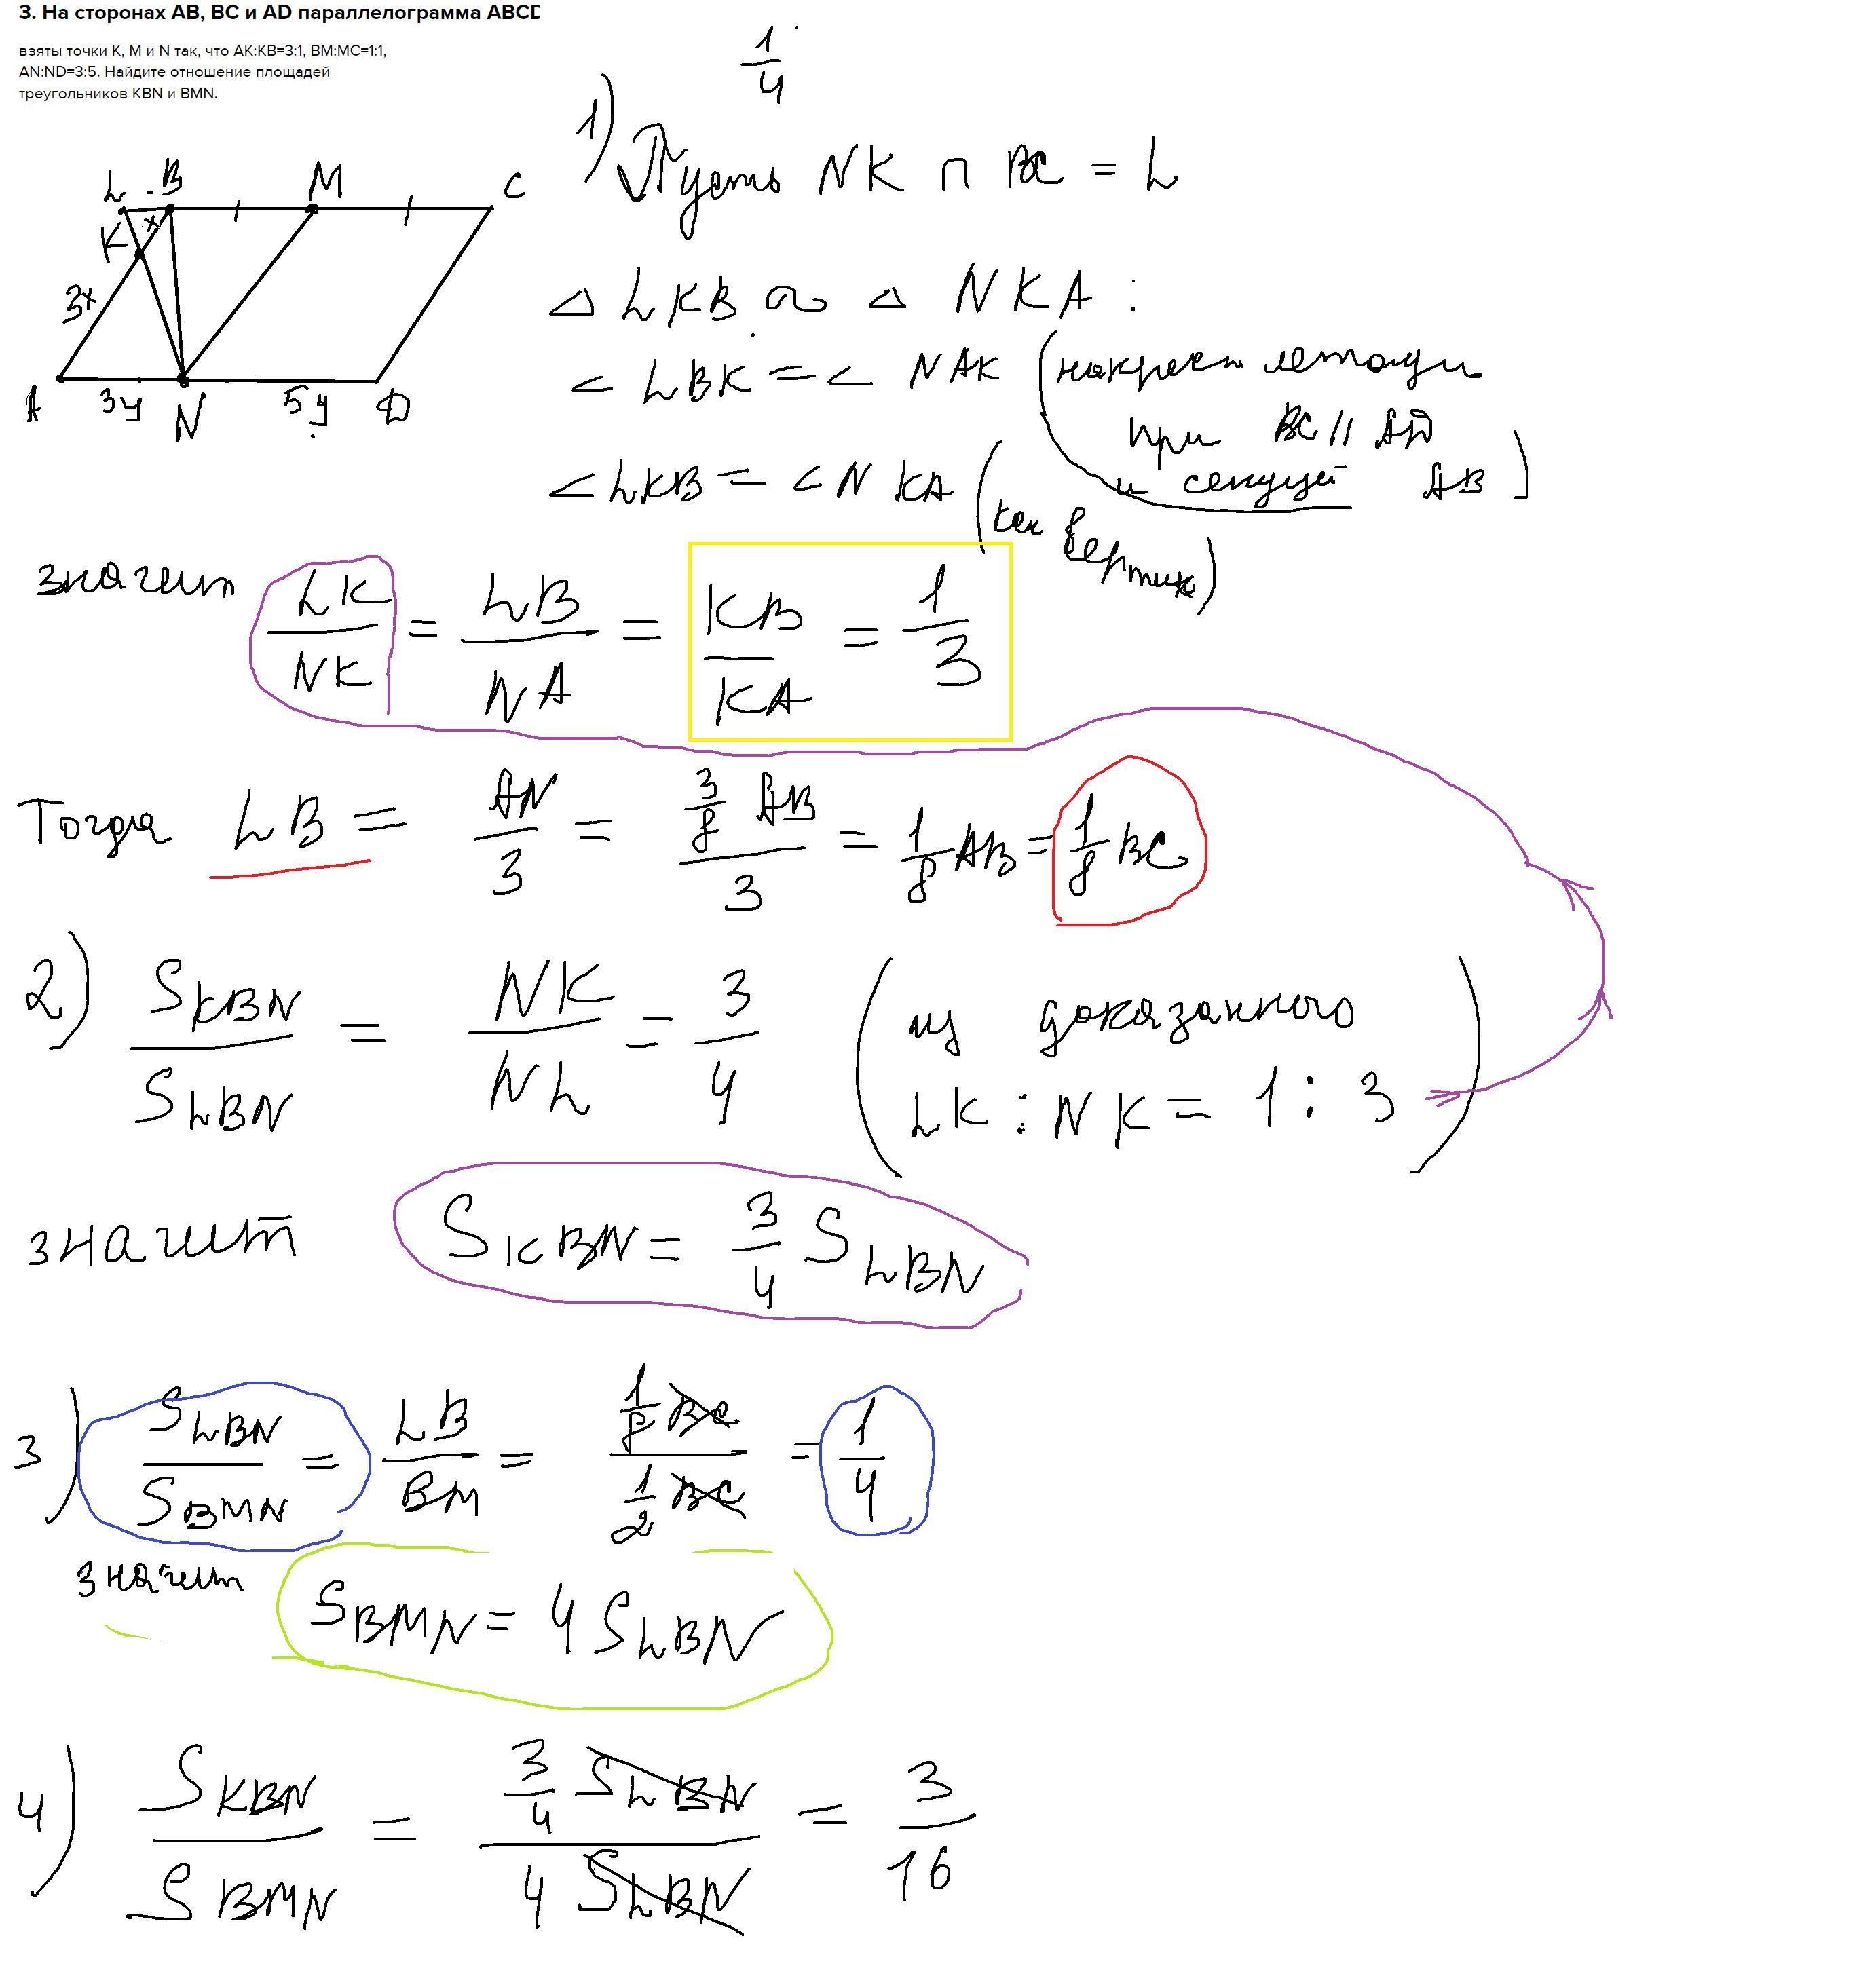 3. На сторонах AB, BC и AD параллелограмма ABCD
взяты точки K, M и N так, что AK:KB=3:1, BM:MC=1:1,
AN:ND=3:5. Найдите отношение площадей
треугольников KBN и BMN.
1/4
L B M C
K x
3x
A 3y N 5y D
1) Пусть NK ∩ BC = L
△ LKB ∼ △ NKA :
∠ LBK = ∠ NAK (накрест летащи
при BC || AD
и секущей AB)
∠ LKB = ∠ NKA (как вертик)
значит LK/NK = LB/NA = KB/KA = 1/3
Тогда LB = AN/3 = (3/8 AB)/3 = 1/8 AB = 1/8 BC
2) S KBN / S LBN = NK/NL = 3/4 (из доказанного
LK : NK = 1 : 3)
значит S KBN = 3/4 S LBN
3) S LBN / S BMN = LB/BM = (1/8 BC)/(1/2 BC) = 1/4
значит S BMN = 4 S LBN
4) S KBN / S BMN = (3/4 S LBN)/(4 S LBN) = 3/16